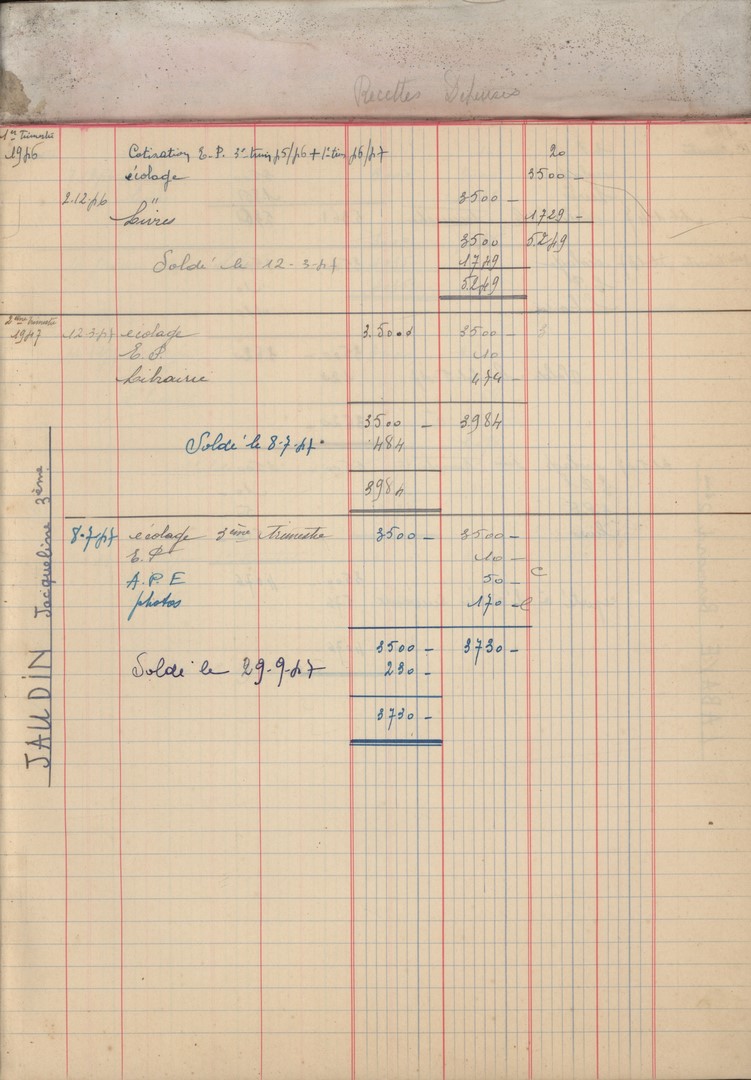 Recettes Dépenses
1er Trimestre
1946
Cotisation E.P. 3e trim 45/46 + 1er trim 46/47 20
écolage 3500 -
2.12.46 " 3500 -
Livres 1729 -
3500 5249
Soldé le 12-3-47 1749
5249
2ème Trimestre
1947
12-3-47 écolage 3.500 3500 -
E.P. 10 -
Librairie 474 -
3500 - 3984
Soldé le 8-7-47. 484
3984
8-7-47 écolage 3ème trimestre 3500 - 3500 -
E.P 10 -
A.P.E 50 - C
photos 170 -
3500 - 3730 -
Soldé le 29-9-47 230 -
3730 -
JAUDIN Jacqueline 3ème